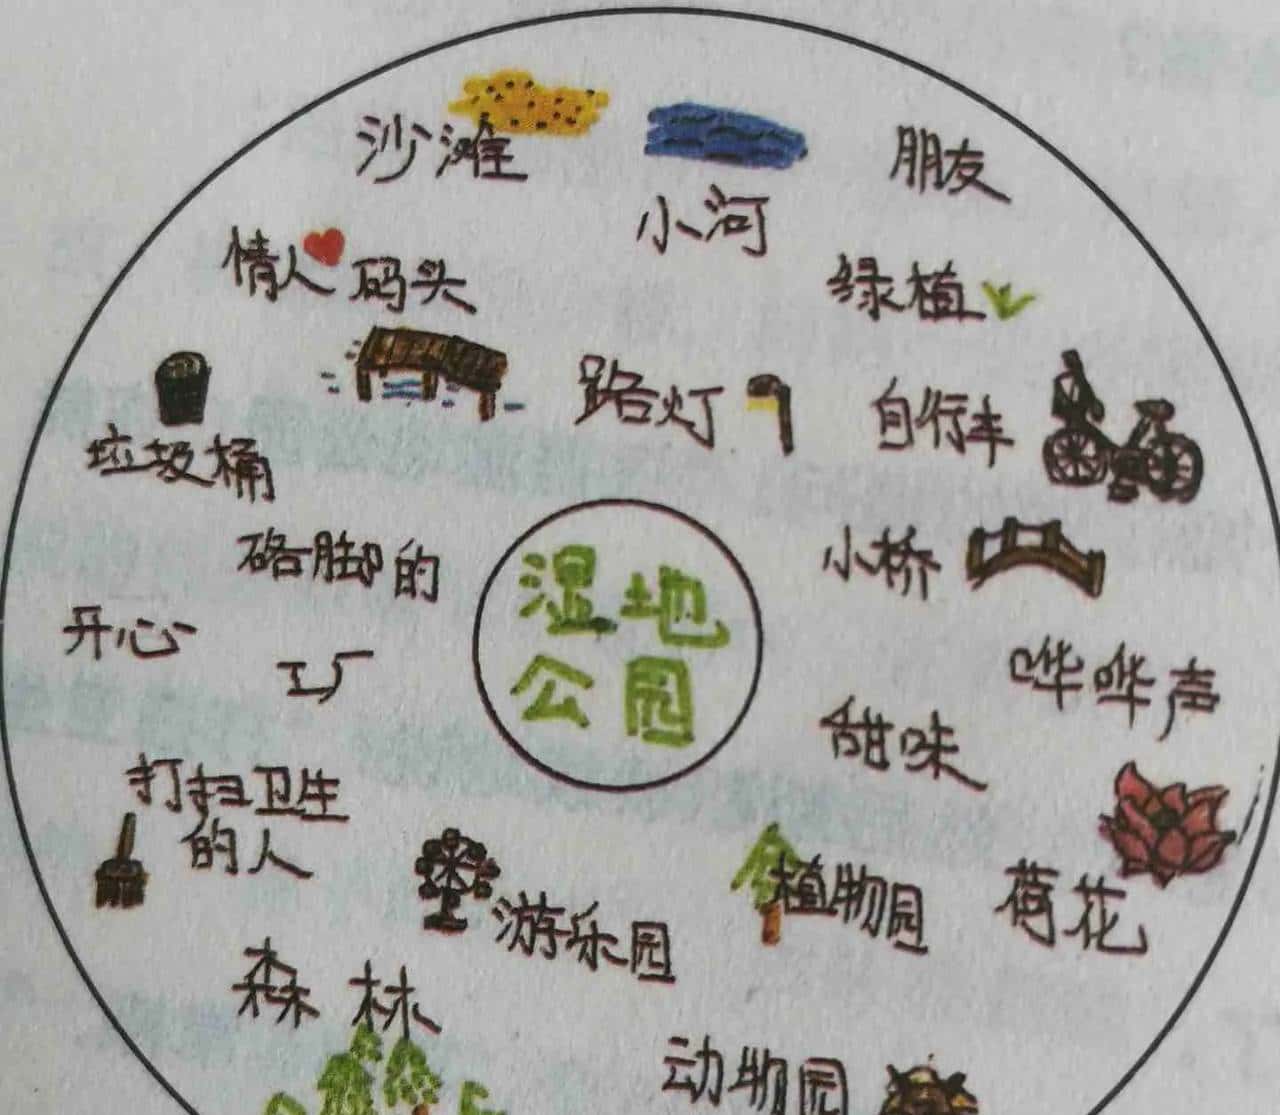 沙滩
小河
朋友
情人
码头
绿植
路灯
自行车
垃圾桶
硌脚的
小桥
湿地
公园
开心
哗哗声
甜味
打扫卫生
的人
植物园
荷花
游乐园
森林
动物园